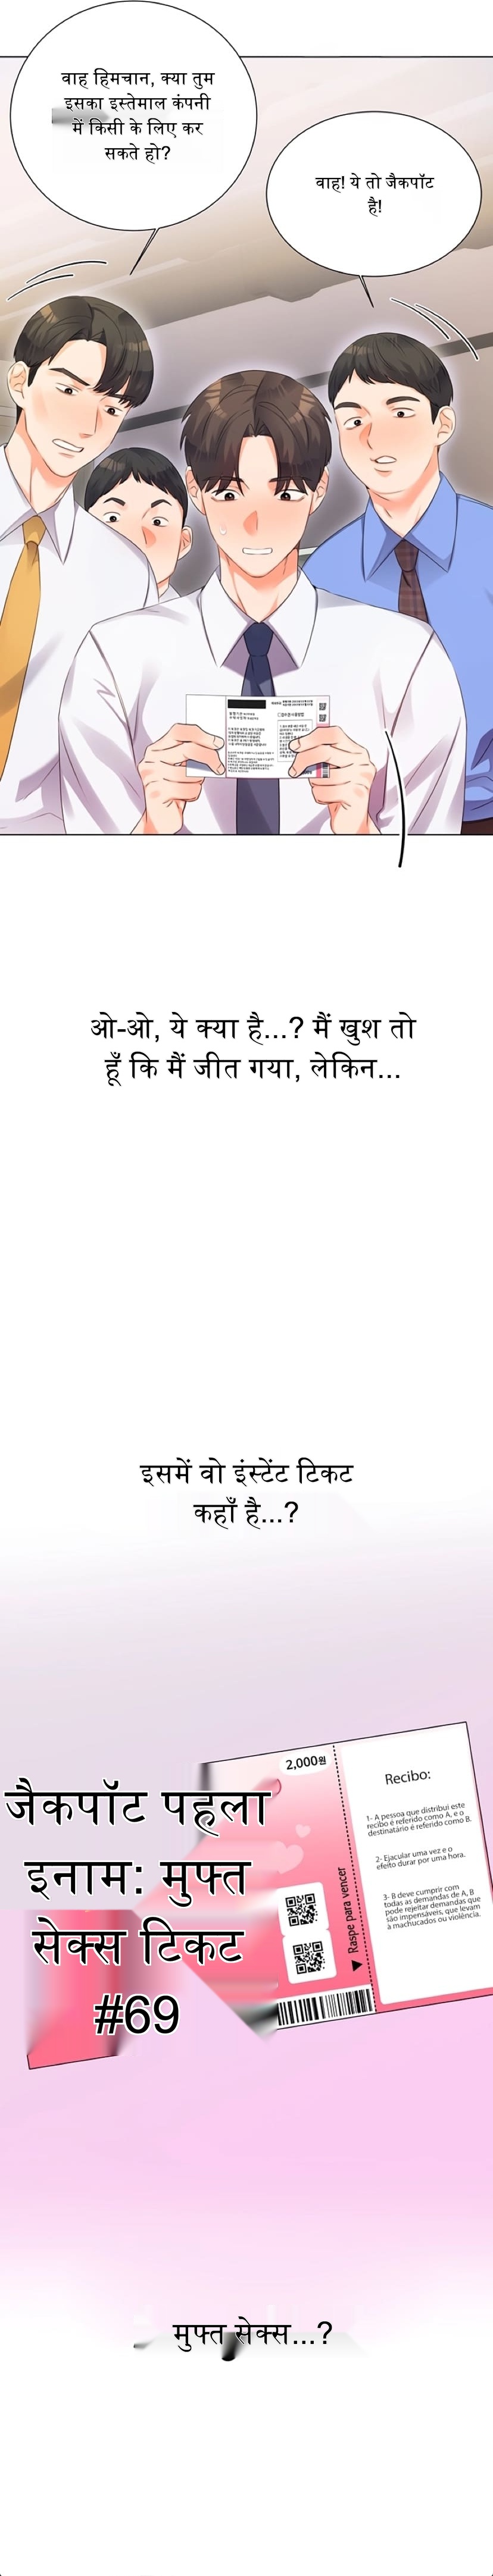 वाह हिमचान, क्या तुम
इसका इस्तेमाल कंपनी
में किसी के लिए कर
सकते हो?
वाह! ये तो जैकपॉट
है!
ओ-ओ, ये क्या है...? मैं खुश तो
हूँ कि मैं जीत गया, लेकिन...
इसमें वो इंस्टेंट टिकट
कहाँ है...?
जैकपॉट पहला
इनाम: मुफ्त
सेक्स टिकट
#69
2,000원
Raspe para vencer
Recibo:
1- A pessoa que distribui este
recibo é referido como A, e o
destinatário é referido como B.
2- Ejacular uma vez e o
efeito durar por uma hora.
3- B deve cumprir com
todas as demandas de A, B
pode rejeitar demandas que
são impensáveis, que levam
à machucados ou violência.
मुफ्त सेक्स...?